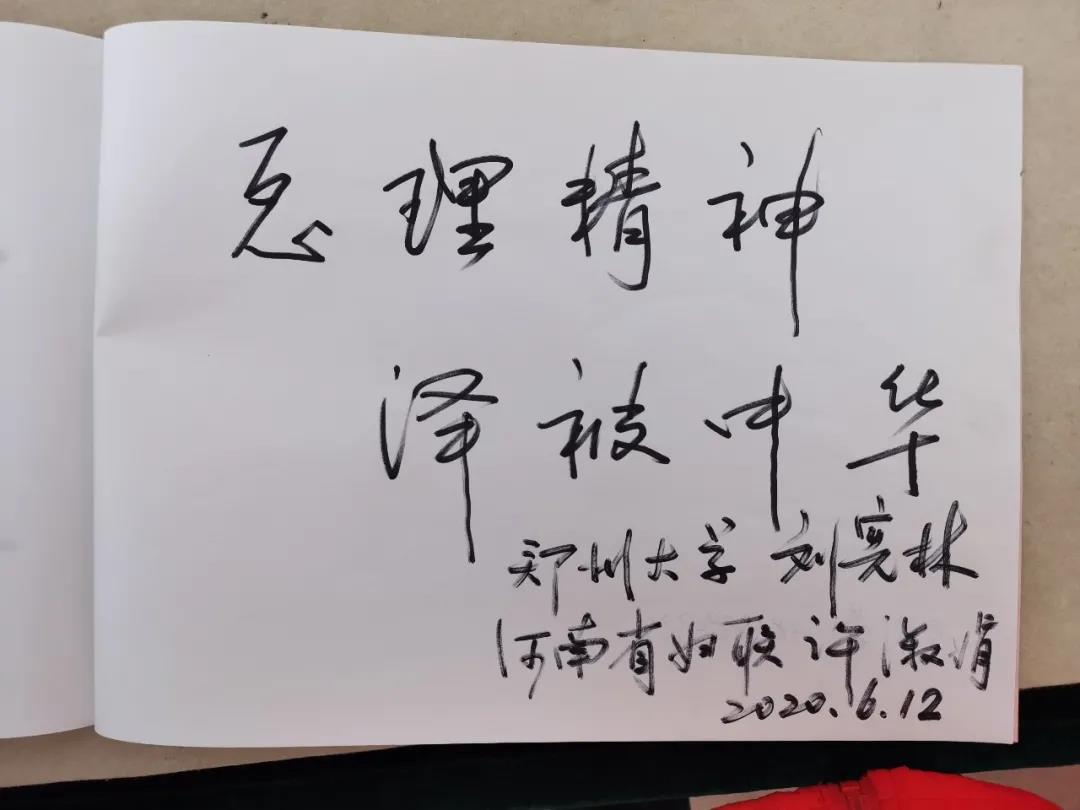 总理精神
泽被中华
郑州大学 刘宪林
河南省妇联 许淑娟
2020.6.12